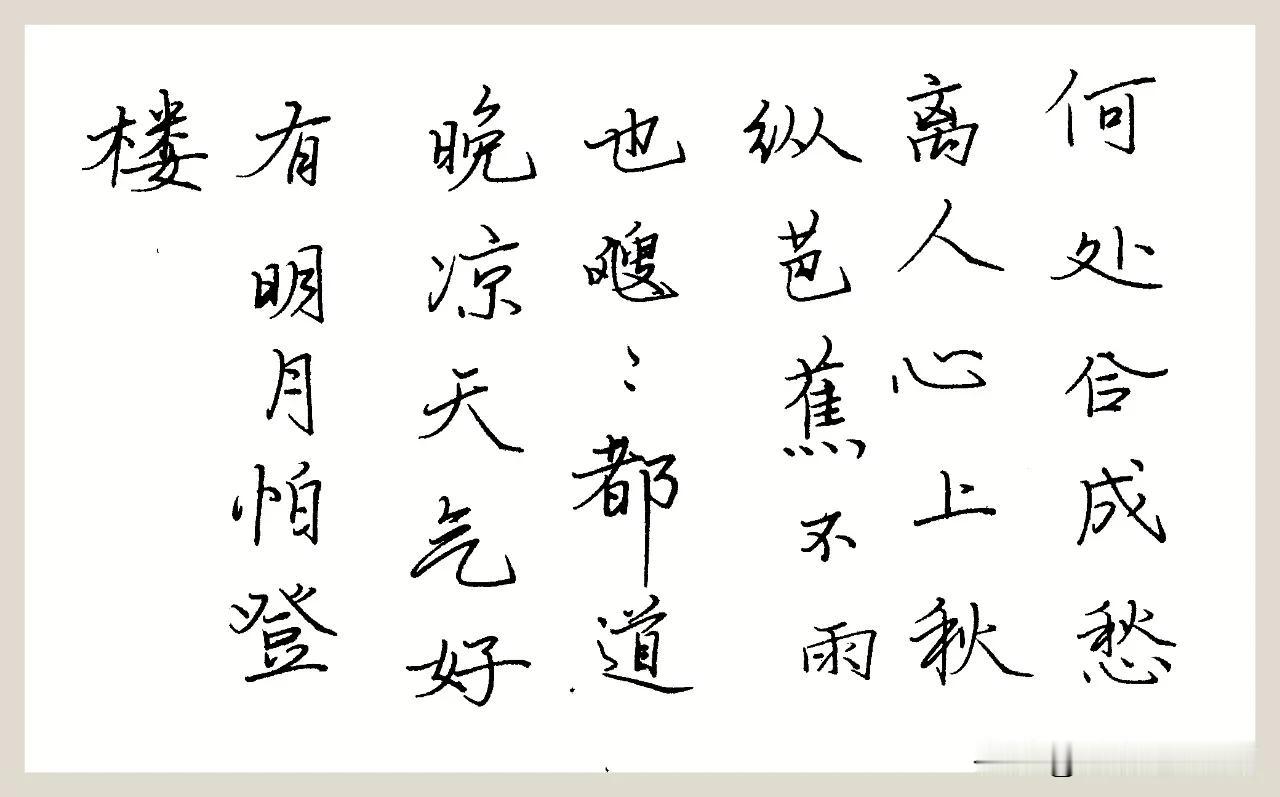 何处合成愁
离人心上秋
纵芭蕉不雨
也飕〻都道
晚凉天气好
有明月怕登
楼